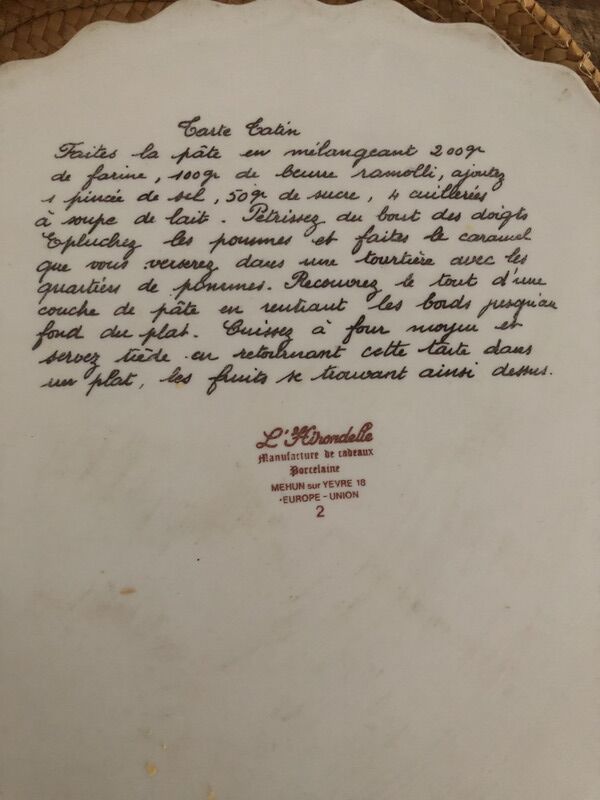 Tarte Tatin
Faites la pâte en mélangeant 200gr
de farine, 100gr de beurre ramolli, ajoutez
1 pincée de sel, 50gr de sucre, 4 cuillerées
à soupe de lait. Pétrissez du bout des doigts
Epluchez les pommes et faites le caramel
que vous verserez dans une tourtière avec les
quartiers de pommes. Recouvrez le tout d'une
couche de pâte en rentrant les bords jusqu'au
fond du plat. Cuissez à four moyen et
servez tiède en retournant cette tarte dans
un plat, les fruits se trouvant ainsi dessus.
L'Hirondelle
Manufacture de cadeaux
Porcelaine
MEHUN sur YEVRE 18
·EUROPE - UNION
2